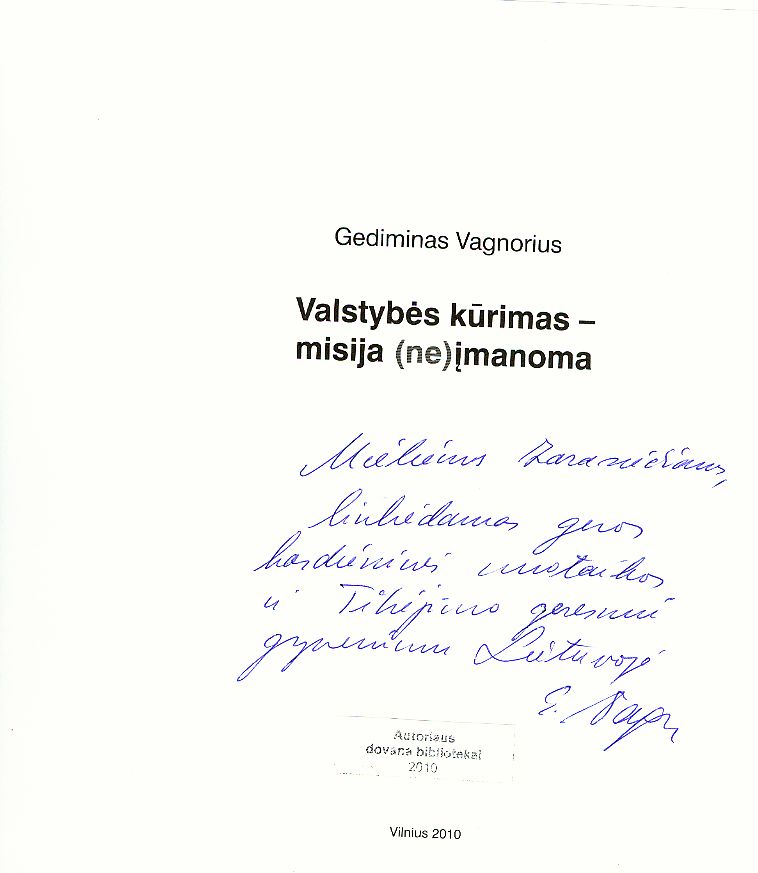 Gediminas Vagnorius
Valstybės kūrimas –
misija (ne)įmanoma
Mieliems
linkėdamas geros
kasdieninės nuotaikos
ir Tikėjimo geresniu
gyvenimu Lietuvoje
G. Vagn
Autoriaus
dovana bibliotekai
2010
Vilnius 2010